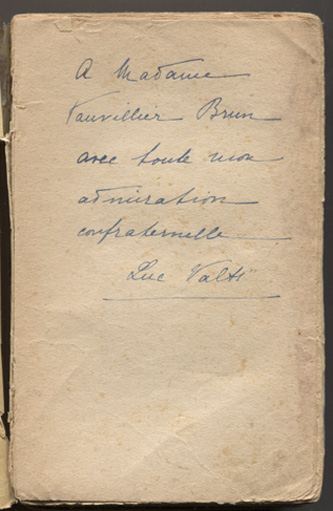 A Madame
Vauvillier Brun
avec toute mon
admiration
confraternelle
Luc Valti